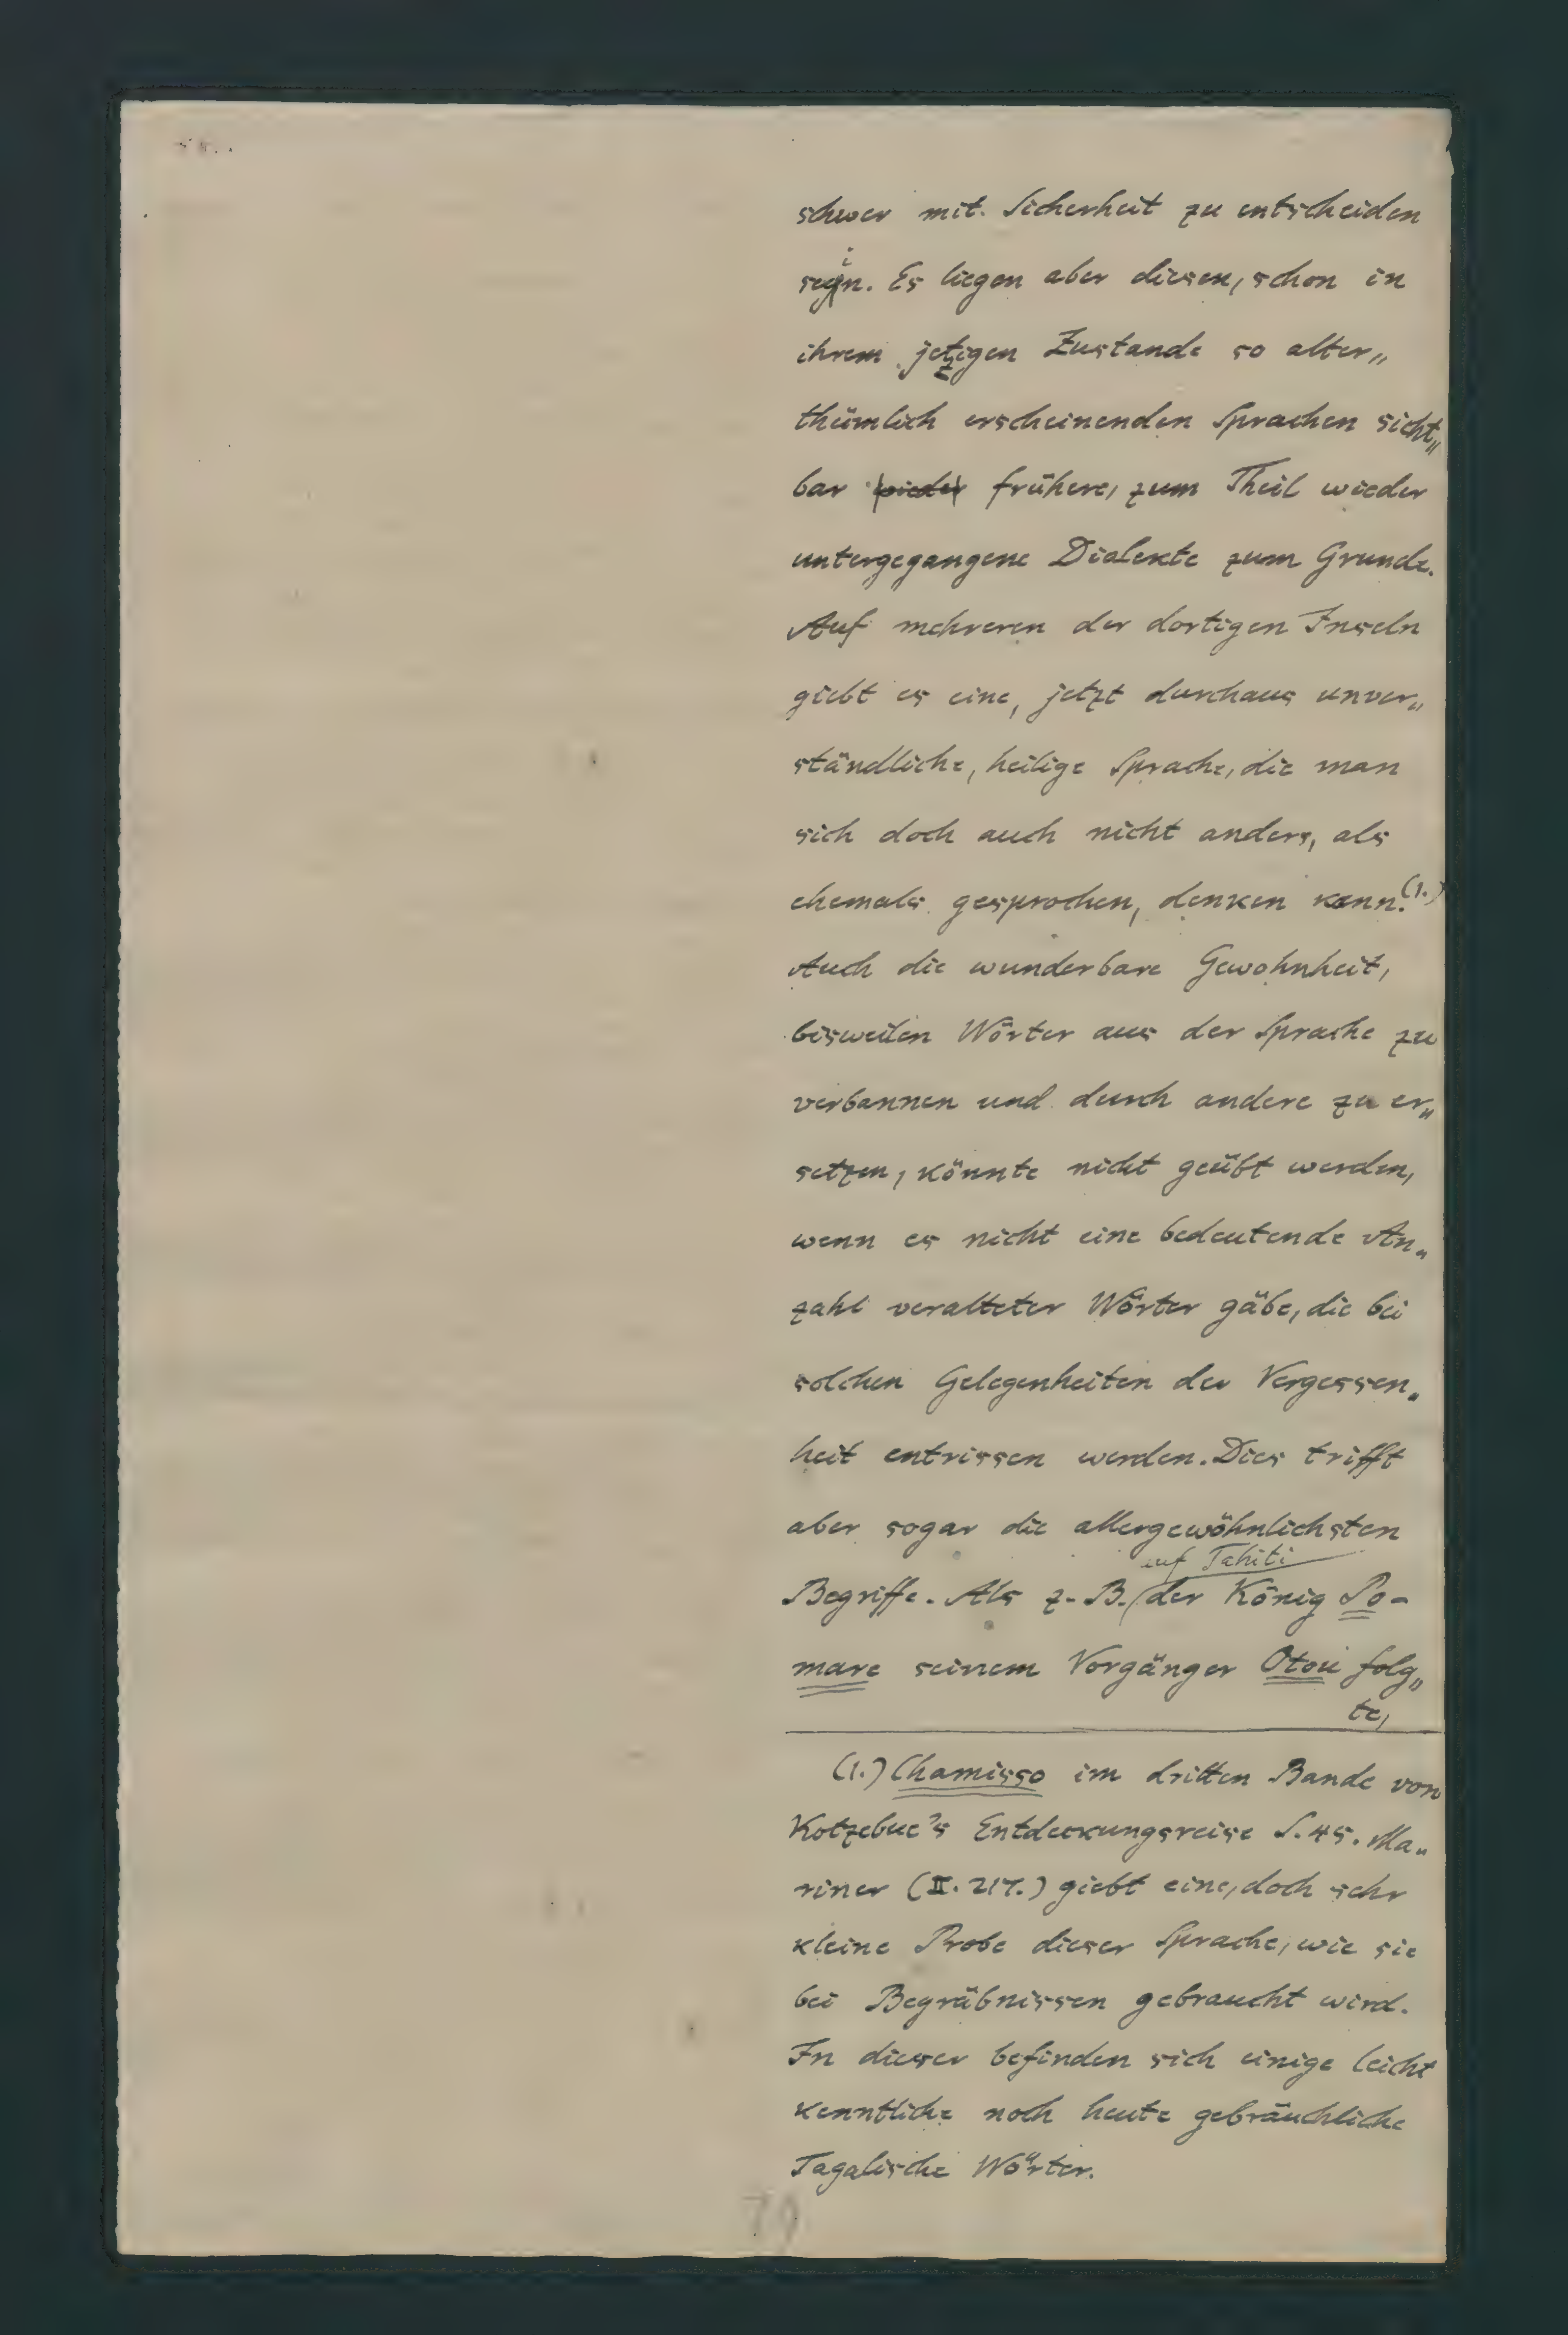 schwer mit Sicherheit zu entscheiden
sein. Es liegen aber diesen, schon in
ihrem jetzigen Zustande so alter„
thümlich erscheinenden Sprachen sicht„
bar wieder frühere, zum Theil wieder
untergegangene Dialekte zum Grunde.
Auf mehreren der dortigen Inseln
giebt es eine, jetzt durchaus unver„
ständliche, heilige Sprache, die man
sich doch auch nicht anders, als
ehemals gesprochen, denken kann.(1.)
Auch die wunderbare Gewohnheit,
bisweilen Wörter aus der Sprache zu
verbannen und durch andere zu er„
setzen, könnte nicht geübt werden,
wenn es nicht eine bedeutende An„
zahl veralteter Wörter gäbe, die bei
solchen Gelegenheiten der Vergessen„
heit entrissen werden. Dies trifft
aber sogar die allergewöhnlichsten
auf Tahiti
Begriffe. Als z. B. der König Po-
mare seinem Vorgänger Otou folg„
te,
(1.) Chamisso im dritten Bande von
Kotzebue's Entdeckungsreise S. 45. Ma„
riner (II. 217.) giebt eine, doch sehr
kleine Probe dieser Sprache, wie sie
bei Begräbnissen gebraucht wird.
In dieser befinden sich einige leicht
kenntliche noch heute gebräuchliche
Tagalische Wörter.